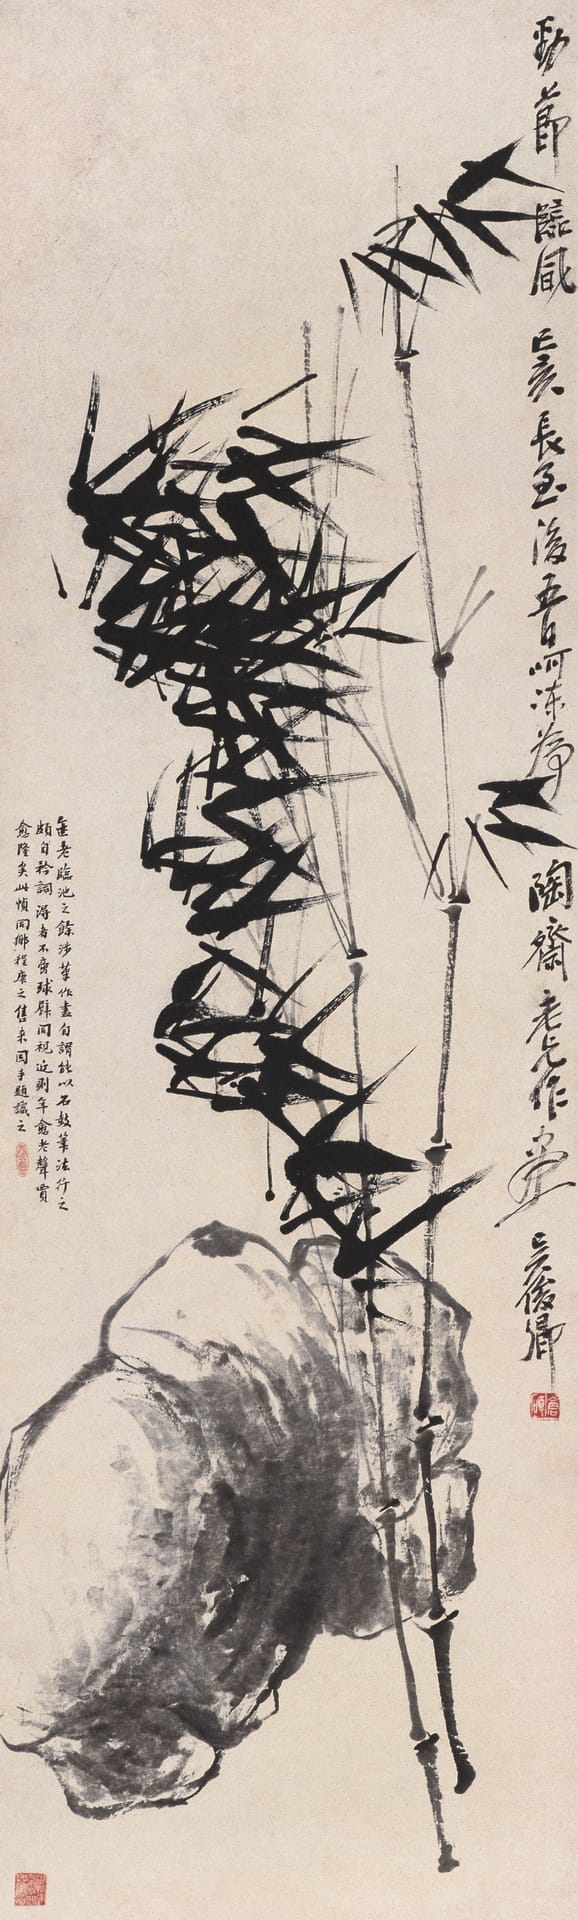 勁節臨風 己亥長至後五日呵凍為 陶齋老兄作畫 吳俊卿
倉碩
缶老臨池之餘涉筆作畫自謂能以石鼓筆法行之
頗自矜詞得者不啻球璧同視近則年愈老聲賈
愈隆矣此幀同鄉程唐之售來因手題識之